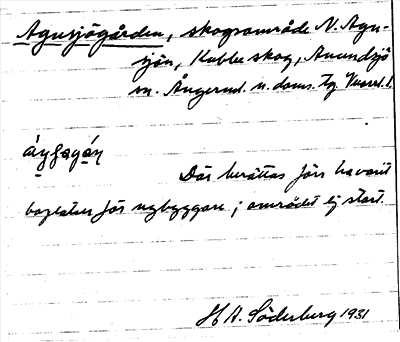 Agnsjögården, skogsområde N. Agn-
sjön, Kubbe skog, Anundsjö
sn. Ångerml. n. doms. tg. Vnorrl. l.
Där berättas förr ha varit
boplatser för nybyggare; området ej stort.
H A. Söderberg 1931